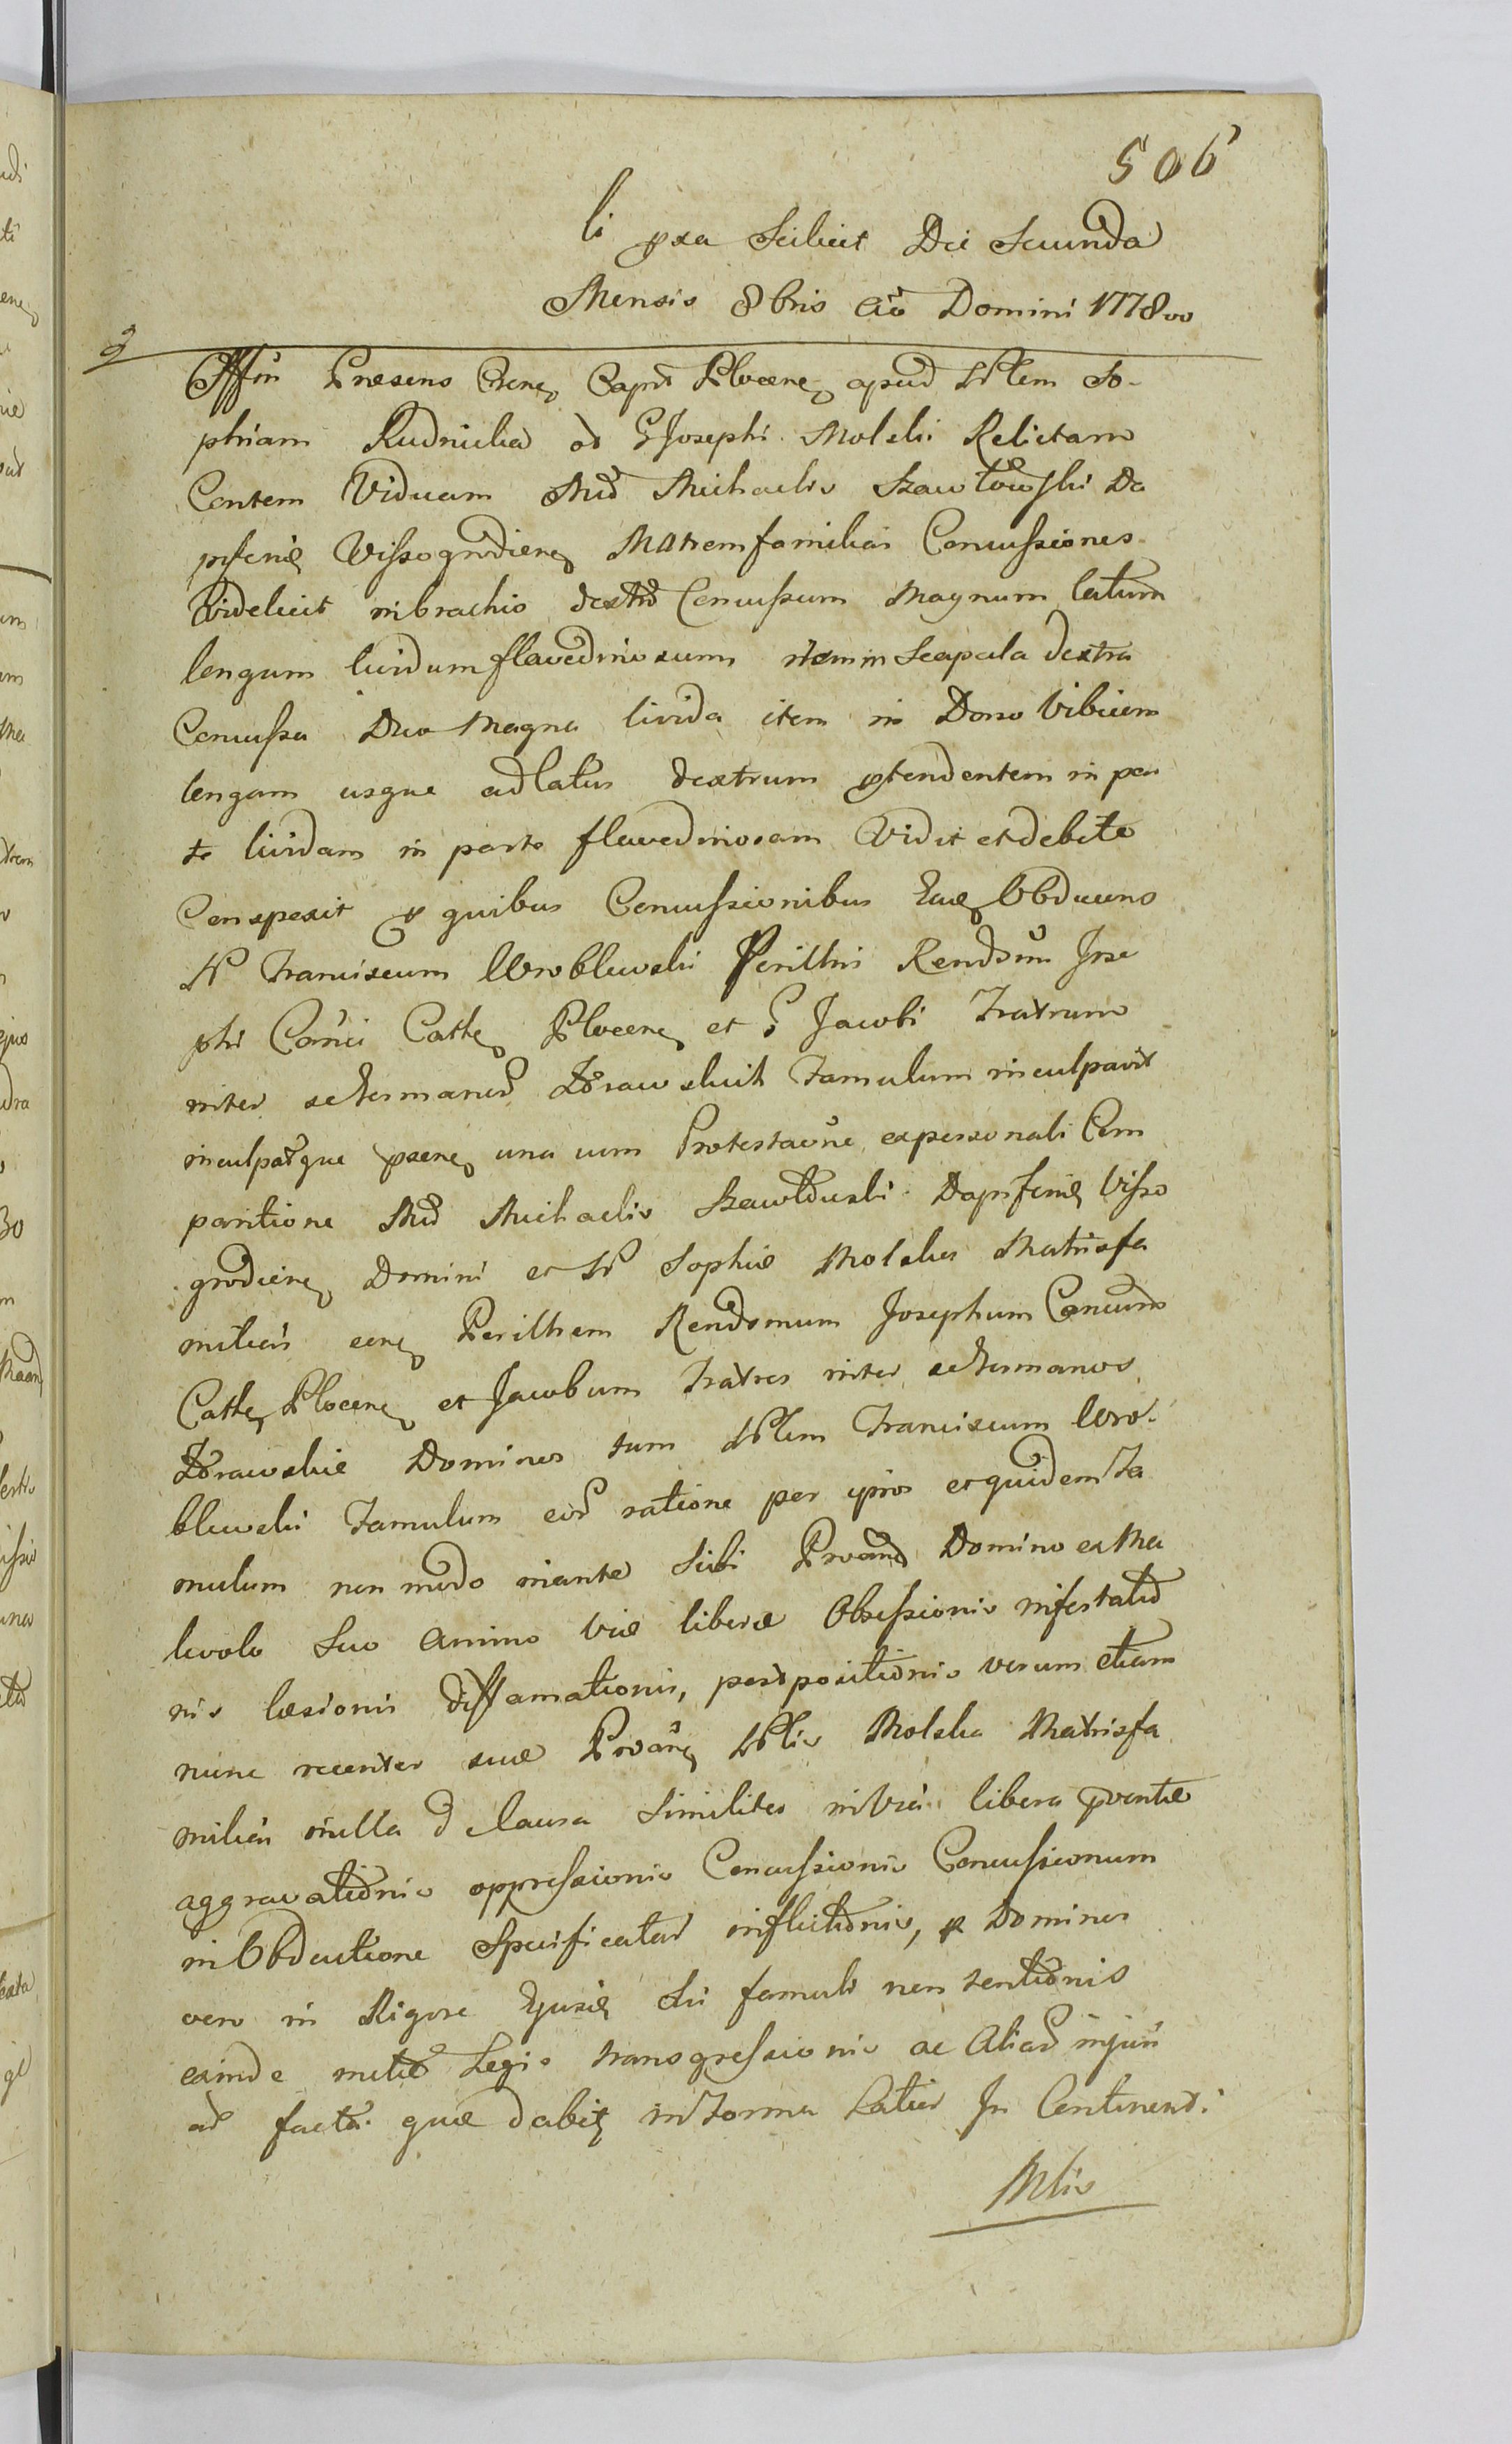 506
li pxa Scilicet Die Secunda
Mensis 8bris Aō Domini 1778vo
Offm Praesens Crene Capti Plocene apud Nlem So-
phiam Rudnicka od G Josephi Molski Relictam
Contem Viduam Md Michaelis Szawłowski Da
piferi Vissogrodiene Matremfamilias Concussiones
Videlicet in brachio dextro Concussum Magnum latum
longum lividum flavedinosum item in Scapula dextra
Concussa Duo Magna livida item in Dorso Vibicem
longam usque ad latus dextrum protendentem in par
te lividam in parte flavedinosam Vidit et debite
Conspexit pro quibus Concussionibus Obducens
N Franciscum Wroblewski Perillris Rendsmi Jose
phi Canci Cathe Plocene et G Jacobi Fratrum
inter se Germanor Zorawskich Famulum inculpavit
inculpatque una cum Protestaōne ex personali Com
paritione Md Michaelis Szawłowski Dapiferi Visso
grodiene Domini et N Sophiae Molska Matrisfa
milias Perillrem Rendsmum Josephum Canicum
Cathe Plocene et Jacobum Fratres inter se Germanos
Zorawskie Dominos tum Nlem Franciscum Wro-
blewski Famulum eor ratione per ipsos et quidem Fa
mulum non modo in ante Sibi Proand Domino ex Ma
levolo Suo Animo Viae liberae Obsessionis infestatio
nis laesionis diffamationis, postpositionis verum etiam
nunc recenter suae Proane Nlis Molska Matrisfa
milias nulla d causa Similiter in Via libera
aggravationis oppressionis Concussionis Concussionum
in Obductione Specificatar inflictionis, pr Dominos
vero in Rigore Sui famuli non tentionis
exinde Legis transgressionis ac Aliar injuri
ar factar quae dabitr in Forma Latior In Continenti
Mlis